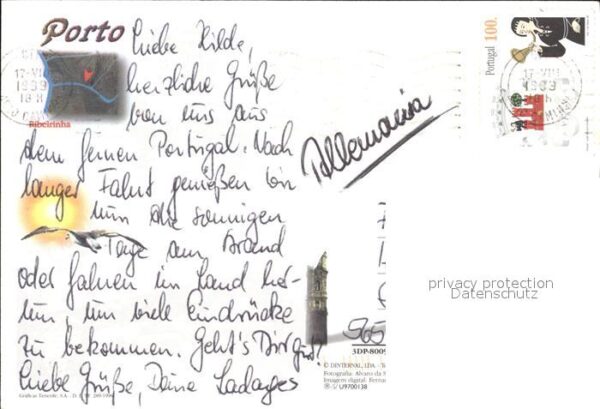 Porto
Liebe Hilde,
herzliche Grüße
von uns aus
dem fernen Portugal. Nach
langer Fahrt genießen wir
nun die sonnigen
Tage am Strand
oder fahren im Land her-
um, um viele Eindrücke
zu bekommen. Geht's Dir gut?
Liebe Grüße, Deine
Ribeirinha
Allemania
Portugal 100.
17-VIII
1999
18H
17-VIII
1999
privacy protection
Datenschutz
965
3DP-8009
© DISTERNAL, LDA.
Fotografia: Alvaro da S
Imagem digital:
U9700138